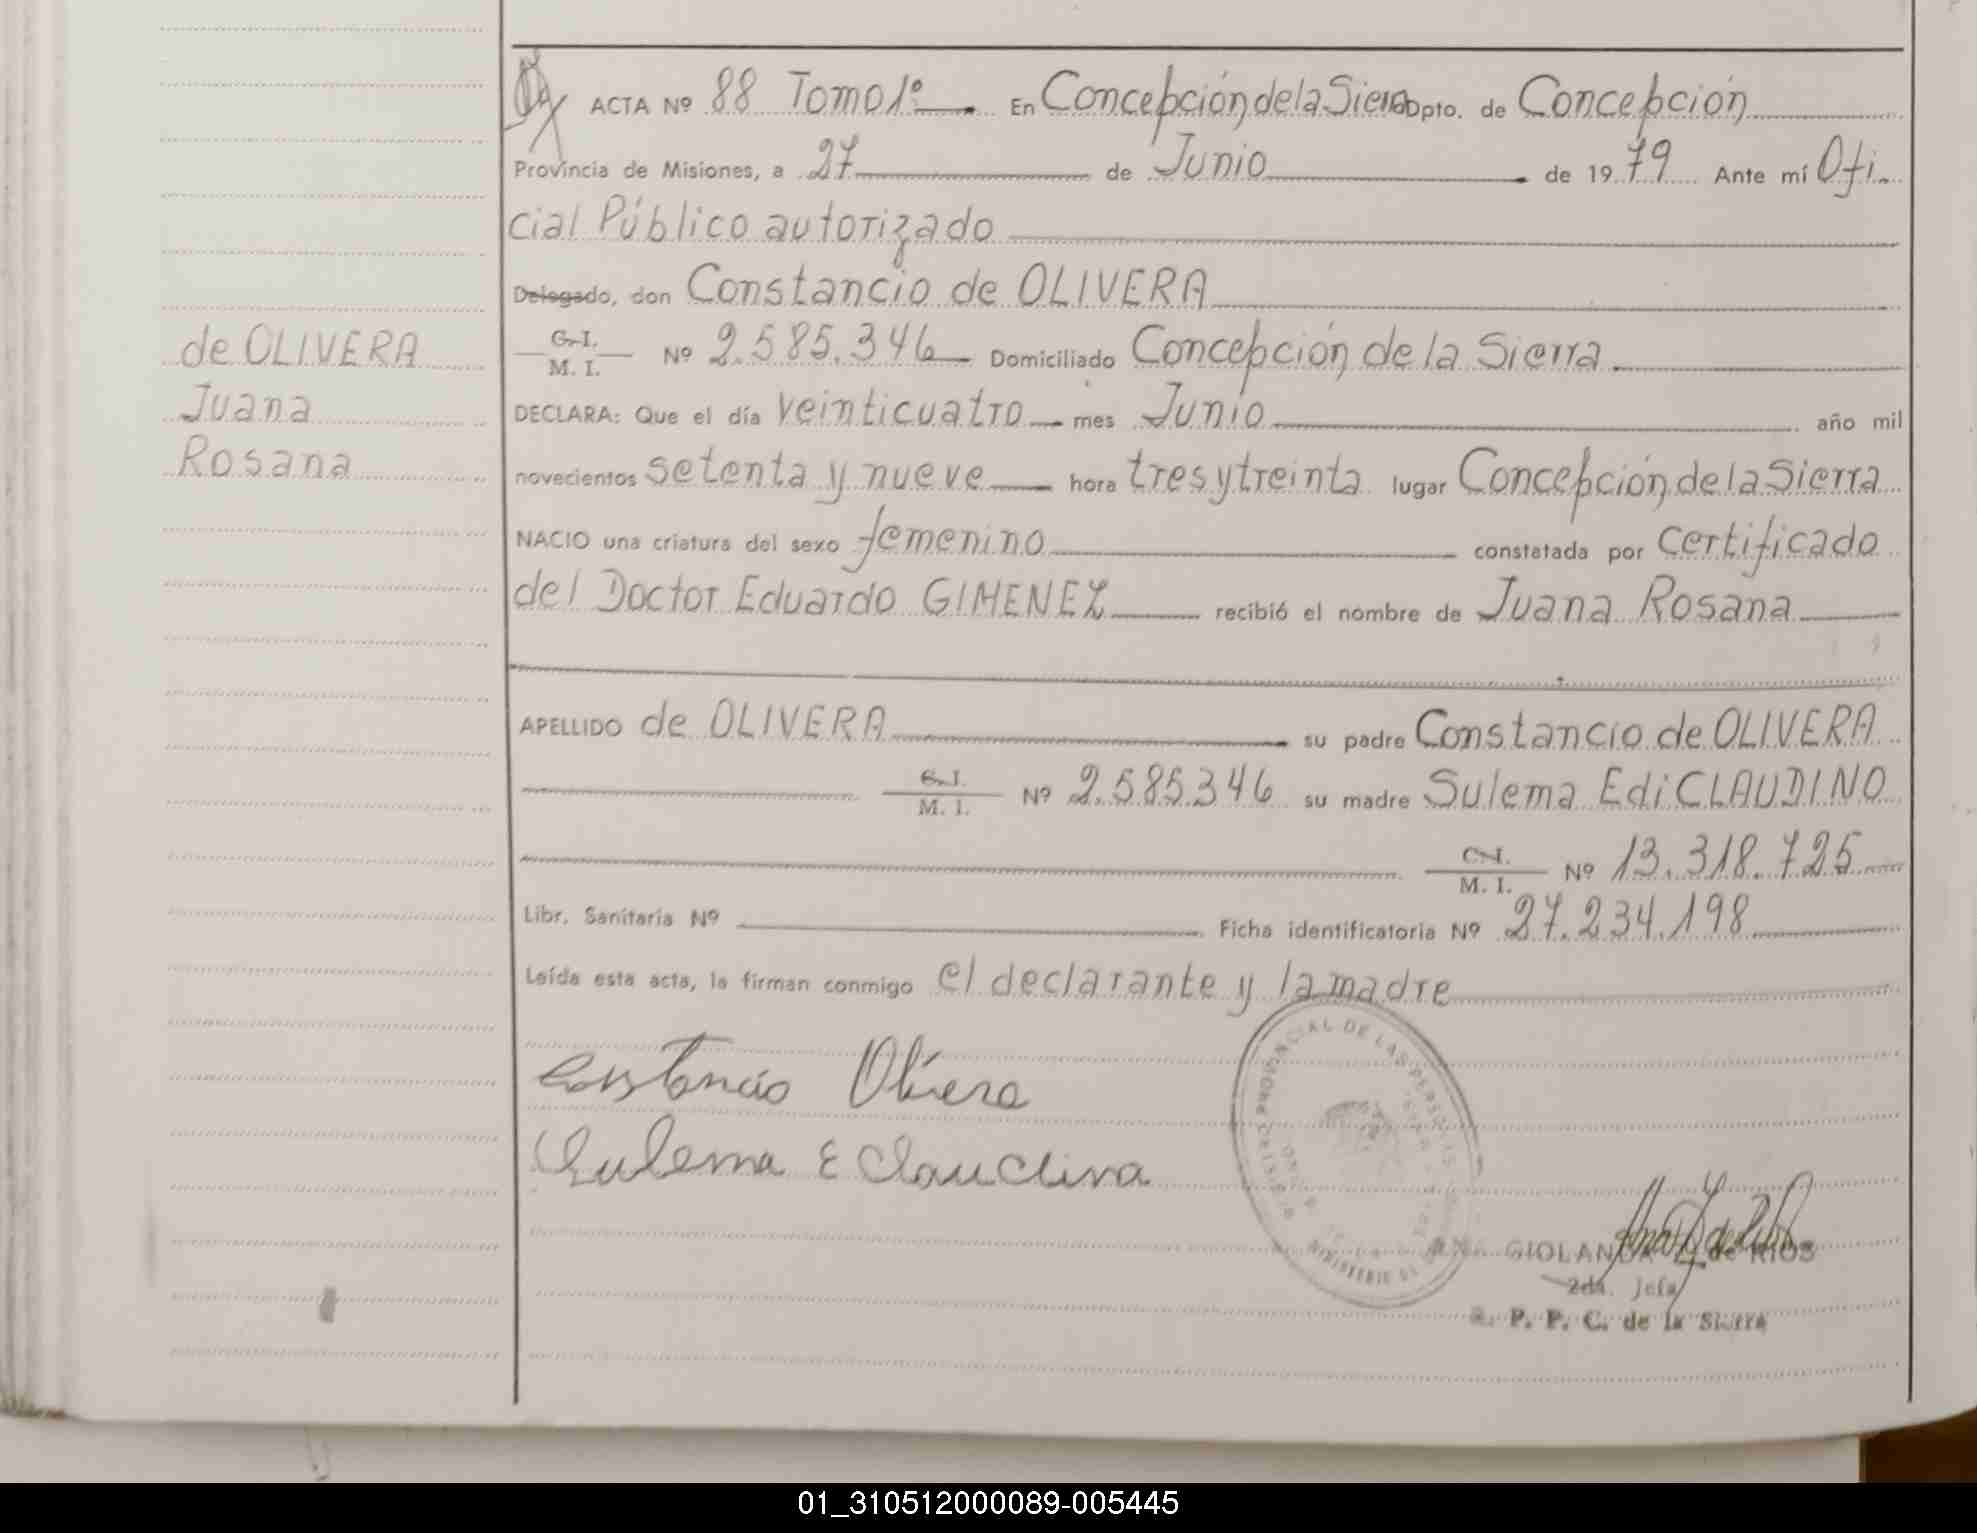 ACTA Nº 88 Tomo 1º En Concepción de la Sierra Dpto. de Concepción
Provincia de Misiones, a 27 de Junio de 1979 Ante mí Ofi
cial Público autorizado
Delegado, don Constancio de OLIVERA
C. I.
M. I. Nº 2.585.346 Domiciliado Concepción de la Sierra
DECLARA: Que el día veinticuatro mes Junio año mil
novecientos setenta y nueve hora tres y treinta lugar Concepción de la Sierra
NACIO una criatura del sexo femenino constatada por certificado
del Doctor Eduardo GIMENEZ recibió el nombre de Juana Rosana
APELLIDO de OLIVERA su padre Constancio de OLIVERA
C. I.
M. I. Nº 2.585.346 su madre Sulema Edi CLAUDINO
C. I.
M. I. Nº 13.318.725
Libr. Sanitaria Nº Ficha identificatoria Nº 27.234.198
Leída esta acta, la firman conmigo el declarante y la madre
de OLIVERA
Juana
Rosana
Constancio Olivera
Sulema E Claudina
PROVINCIAL DE LAS PERSONAS
MINISTERIO DE
GIOLANDA de RIOS
2da. Jefa
R. P. P. C. de la Sierra
01_310512000089-005445